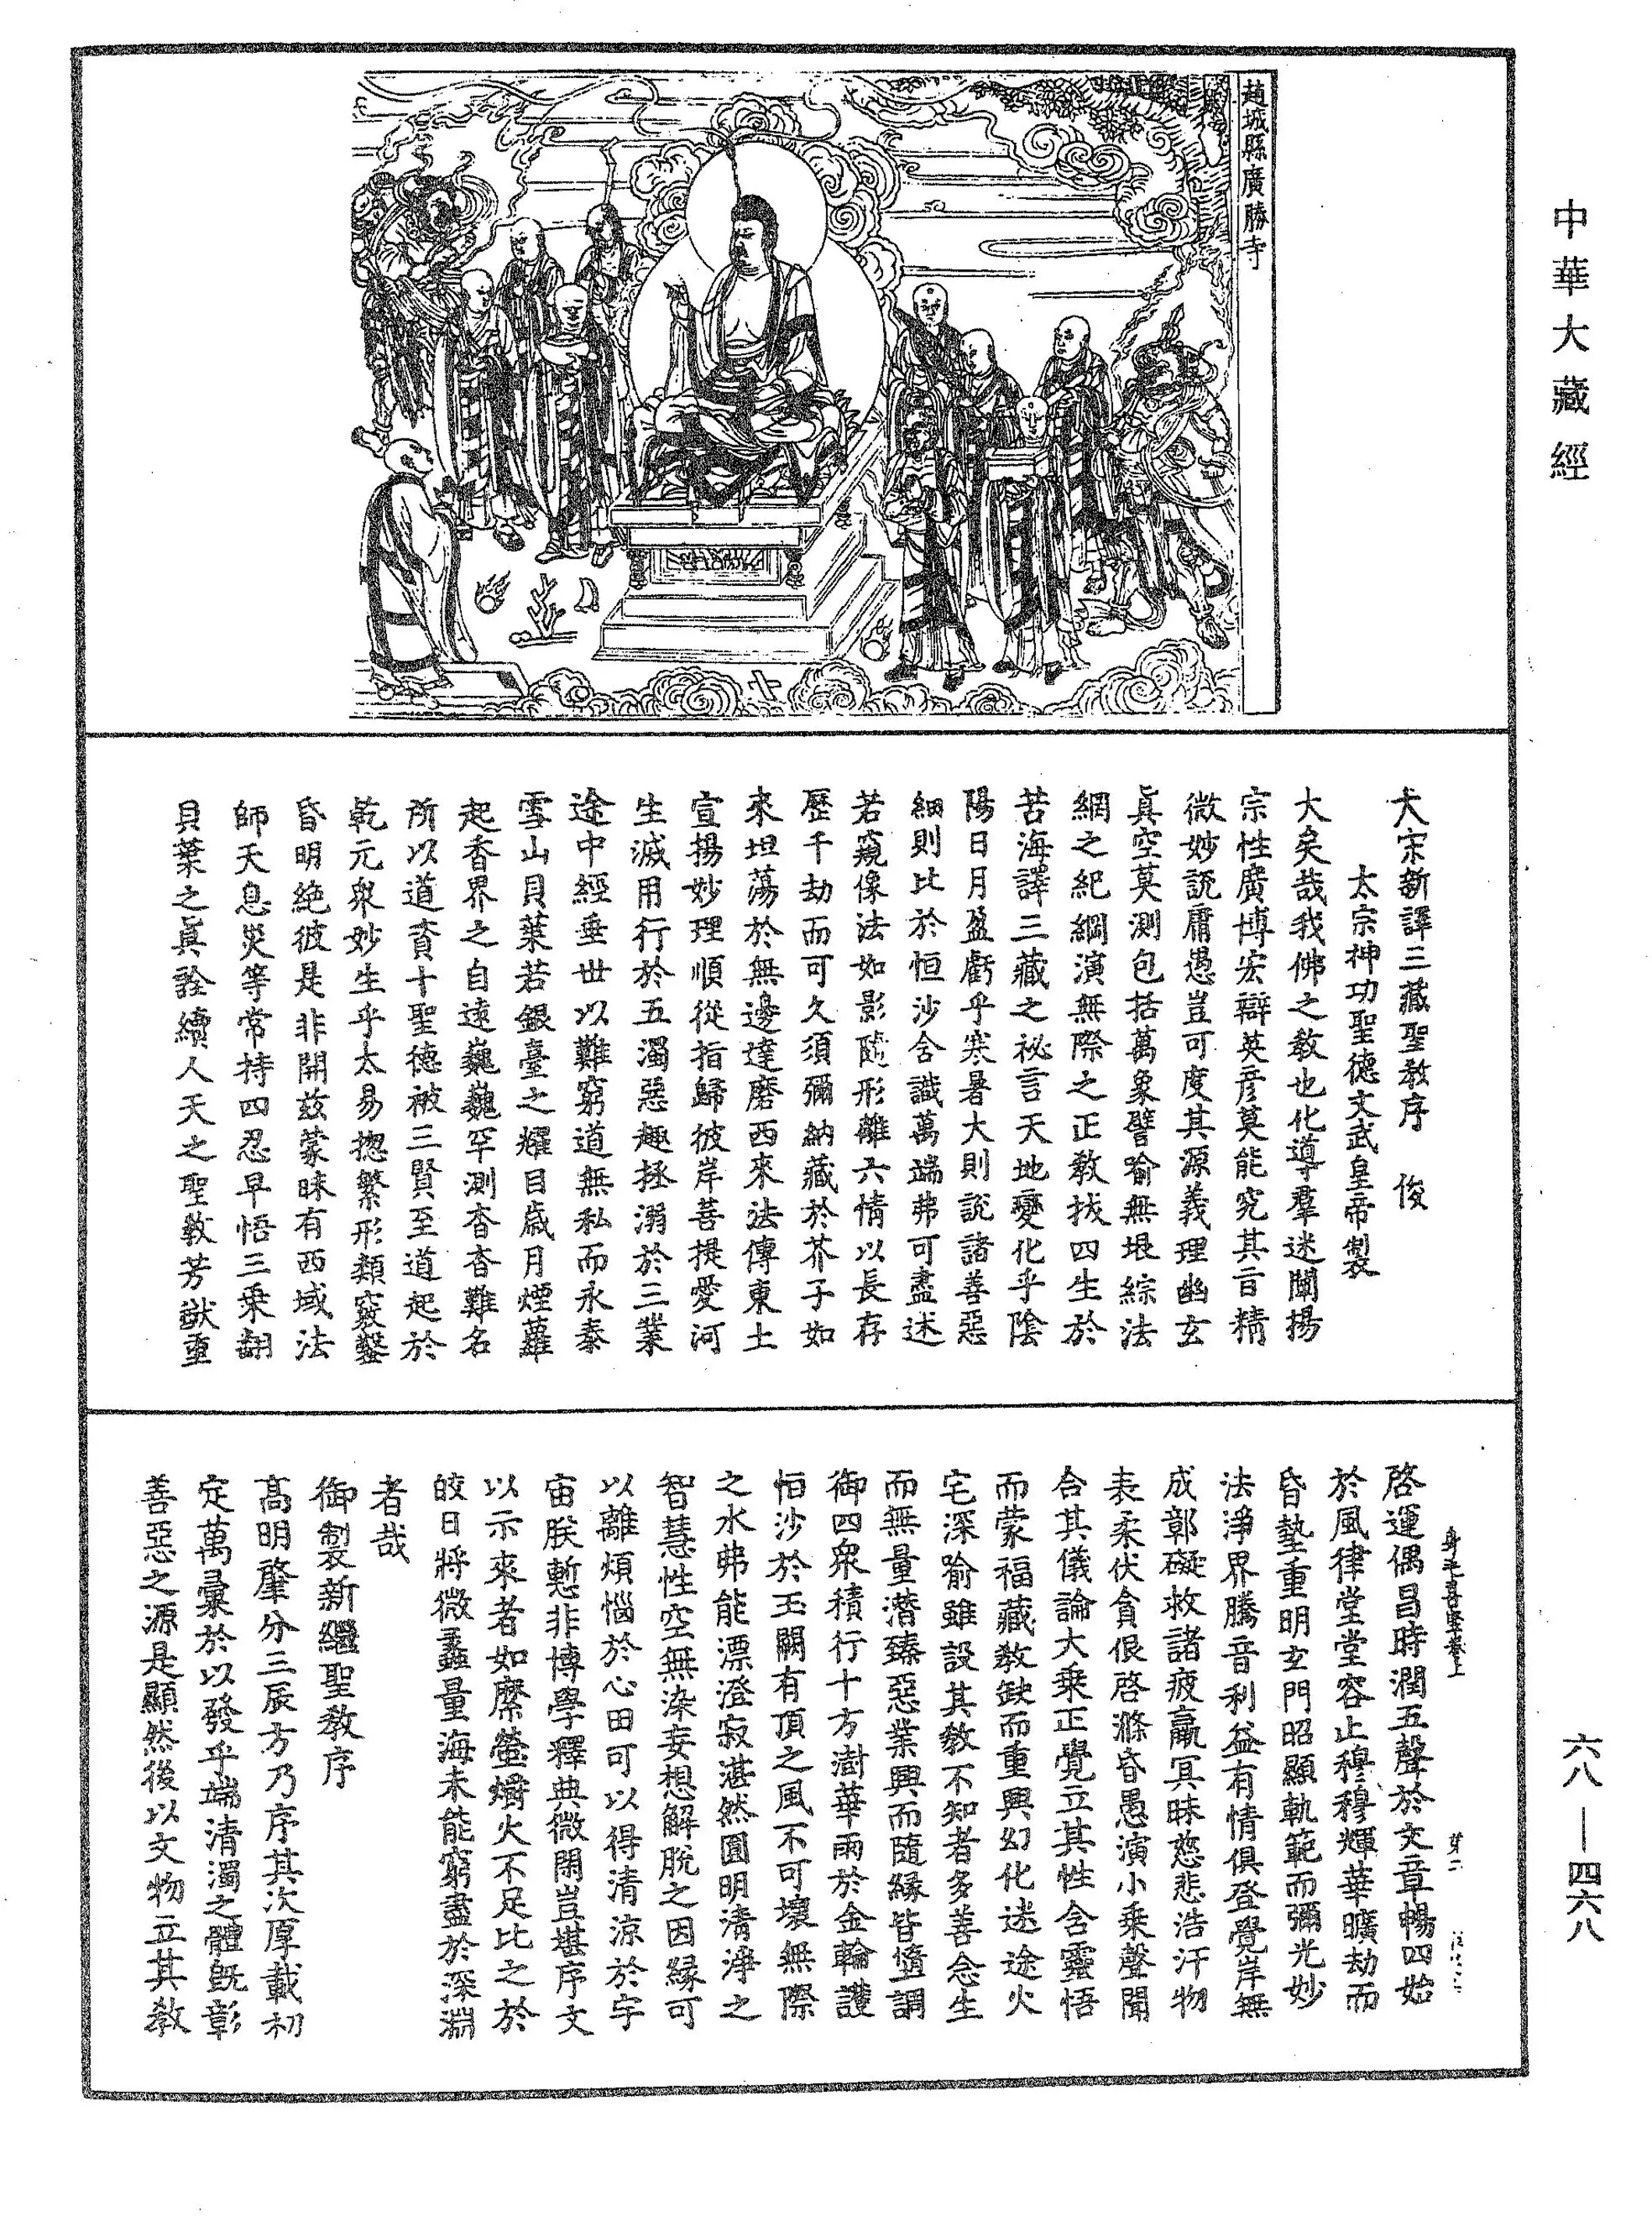 中華大藏經
趙城縣廣勝寺
大宋新譯三藏聖教序　俊
太宗神功聖德文武皇帝製
大矣哉我佛之教也化導羣迷闡揚
宗性廣博宏辯英彥莫能究其旨精
微妙說庸愚豈可度其源義理幽玄
真空莫測包括萬象譬喻無垠綜法
網之紀綱演無際之正教拔四生於
苦海譯三藏之祕言天地變化乎陰
陽日月盈虧乎寒暑大則說諸善惡
細則比於恒沙含識萬端弗可盡述
若窺像法如影隨形離六情以長存
歷千劫而可久須彌納藏於芥子如
來坦蕩於無邊達磨西來法傳東土
宣揚妙理順從指歸彼岸菩提愛河
生滅用行於五濁惡趣拯溺於三業
途中經垂世以難窮道無私而永泰
雪山貝葉若銀臺之耀目歲月煙蘿
起香界之自遠巍巍罕測杳杳難名
所以道資十聖德被三賢至道起於
乾元衆妙生乎太易揔繁形類竅鑿
昏明絶彼是非開兹蒙昧有西域法
師天息災等常持四忍早悟三乘翻
貝葉之真詮續人天之聖教芳猷重
啓運偶昌時潤五聲於文章暢四始
於風律堂堂容止穆穆輝華曠劫而
昏墊重明玄門昭顯軌範而彌光妙
法淨界騰音利益有情俱登覺岸無
成鄣礙救諸疲羸冥昧慈悲浩汗物
表柔伏貪佷啓滌昏愚演小乘聲聞
合其儀論大乘正覺立其性含靈悟
而蒙福藏教缺而重興幻化迷途火
宅深喻雖設其教不知者多善念生
而無量潛臻惡業興而隨緣皆墮調
御四衆積行十方澍華雨於金輪護
恒沙於玉闕有頂之風不可壞無際
之水弗能漂澄寂湛然圓明清淨之
智慧性空無染妄想解脫之因緣可
以離煩惱於心田可以得清涼於宇
宙朕慙非博學釋典微閑豈堪序文
以示來者如縻螢爝火不足比之於
皎日將微蠡量海未能窮盡於深淵
者哉
御製新繼聖教序
高明肇分三辰方乃序其次厚載初
定萬彙於以發乎端清濁之體旣彰
善惡之源是顯然後以文物立其教
六八—四六八